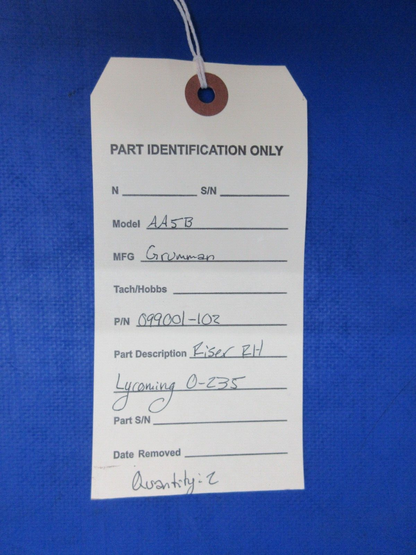 PART IDENTIFICATION ONLY
N S/N
Model AA5B
MFG Grumman
Tach/Hobbs
P/N 099001-102
Part Description Riser RH
Lycoming O-235
Part S/N
Date Removed
Quantity: 2